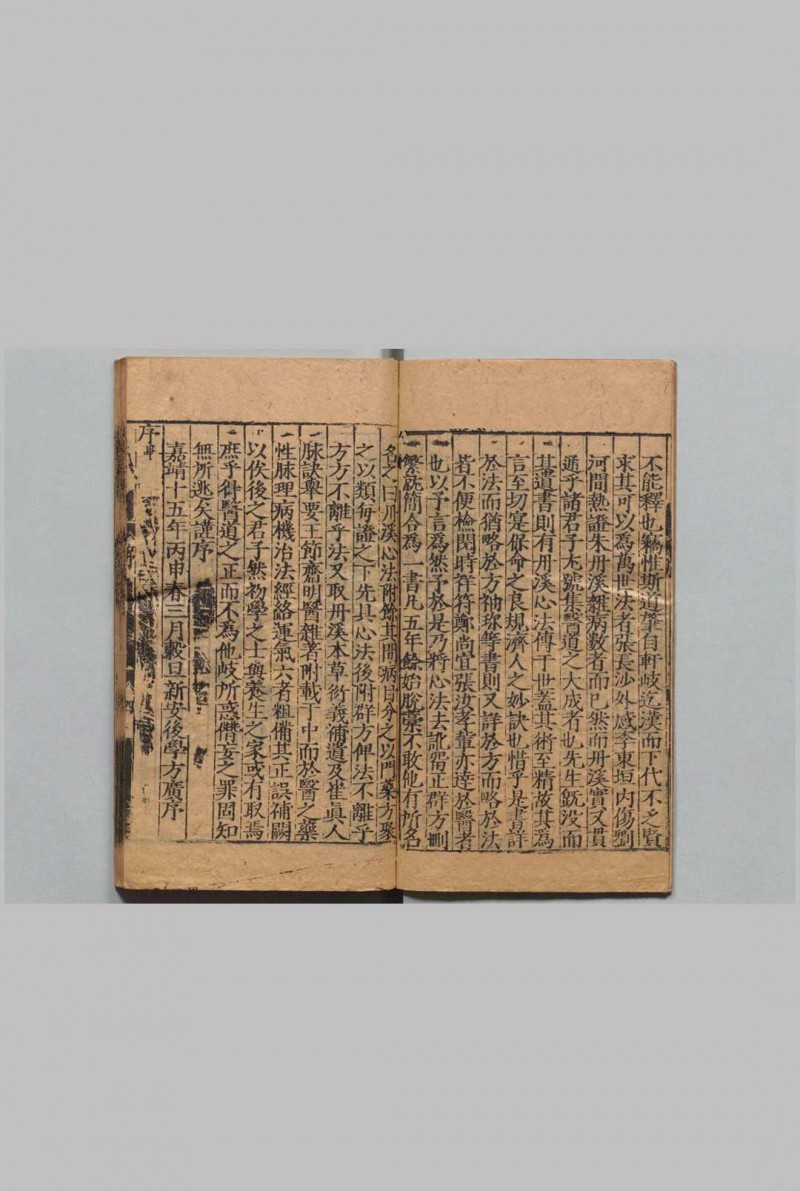 不能釋也竊惟斯道肇自軒岐迄漢而下代不乏賢
求其可以為萬世法者張長沙外感李東垣内傷劉
河間熱證朱丹溪雜病數者而已然而丹溪實又貫
通乎諸君子尤號集醫道之大成者也先生旣没而
其遺書則有丹溪心法傳于世蓋其術至精故其為
言至切寔保命之良規濟人之妙訣也惜乎是書詳
於法而猶略於方袖珎等書則又詳於方而略於法
皆不便檢閱時祥符鄭尚宜張汝孝輩亦逹於醫者
也以予言為然予於是乃將心法去訛留正群方刪
繁蕪簡合為一書凡五年餘始脫藁不敢他有所名
名之曰丹溪心法附餘其間病目分之以門藥方聚
之以類每證之下先具心法後附群方俾法不離乎
方方不離乎法又取丹溪本草衍義補遺及崔真人
脉訣舉要王節齋明醫雜著附載于中而於醫之藥
性脉理病機治法經絡運氣六者粗備其正誤補闕
以俟後之君子然初學之士與養生之家或有取焉
庶乎得醫道之正而不為他岐所惑僭妄之罪固知
無所逃矣謹序
嘉靖十五年丙申春三月穀旦新安後學方廣序
序